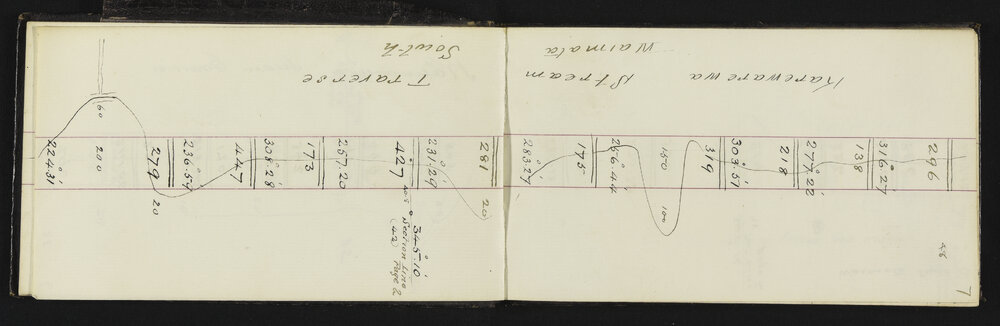 Karewarewa Stream Traverse
Waimata South
7
48
296
316°.27'
138
277°.22'
218
303°.51'
319
150
100
256°.44'
175
283°.27'
281
20
231°.29'
427
345°.10'
Section Line
(42) Page 2
257.20
173
308°.28'
447
236°.54'
279
20
200
60
224°.31'